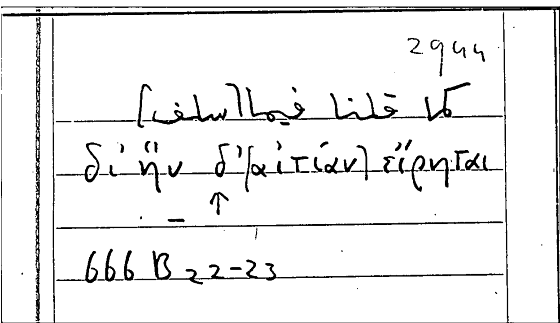 2944
كما قلنا فيما [سلف]
δι' ἣν δ' [αἰτίαν] εἴρηται
↑
666 B 22-23